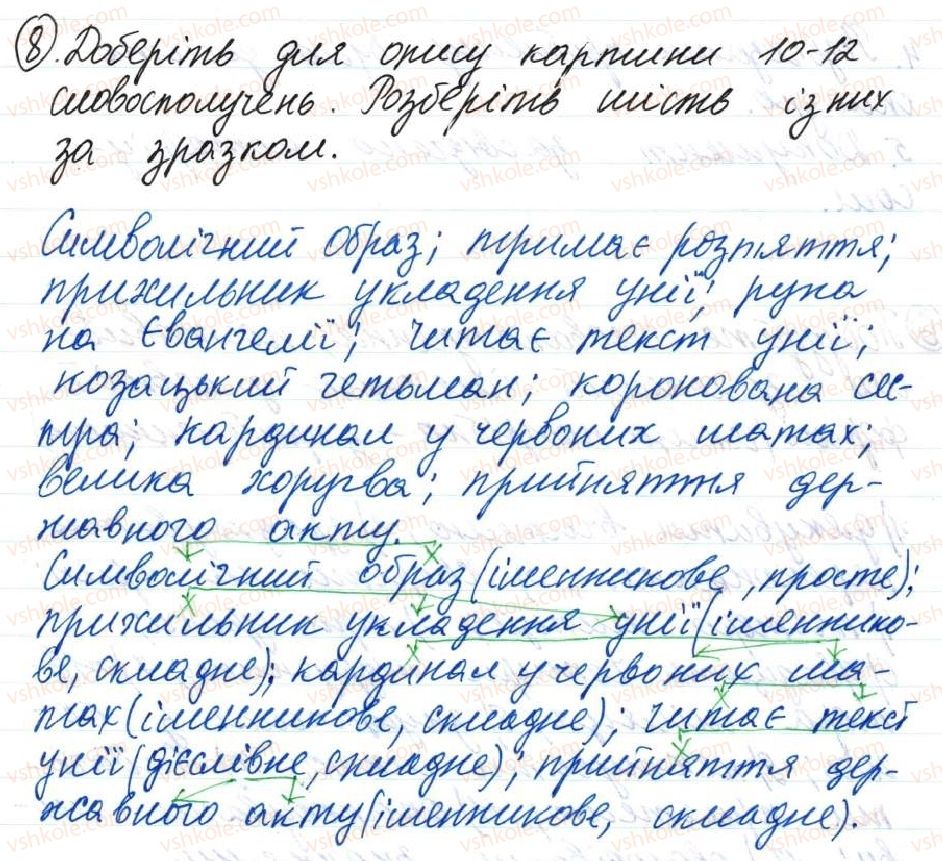 8. Доберіть для опису картини 10-12
словосполучень. Розберіть шість із них
за зразком.
Символічний образ; тримає розп'яття;
прихильник укладення унії; рука
на Євангелії; читає текст унії;
козацький гетьман; коронована се-
стра; кардинал у червоних шатах;
велика хоругва; прийняття дер-
жавного акту.
Символічний образ (іменникове, просте);
прихильник укладення унії (іменнико-
ве, складне); кардинал у червоних ша-
тах (іменникове, складне); читає текст
унії (дієслівне, складне); прийняття дер-
жавного акту (іменникове, складне).